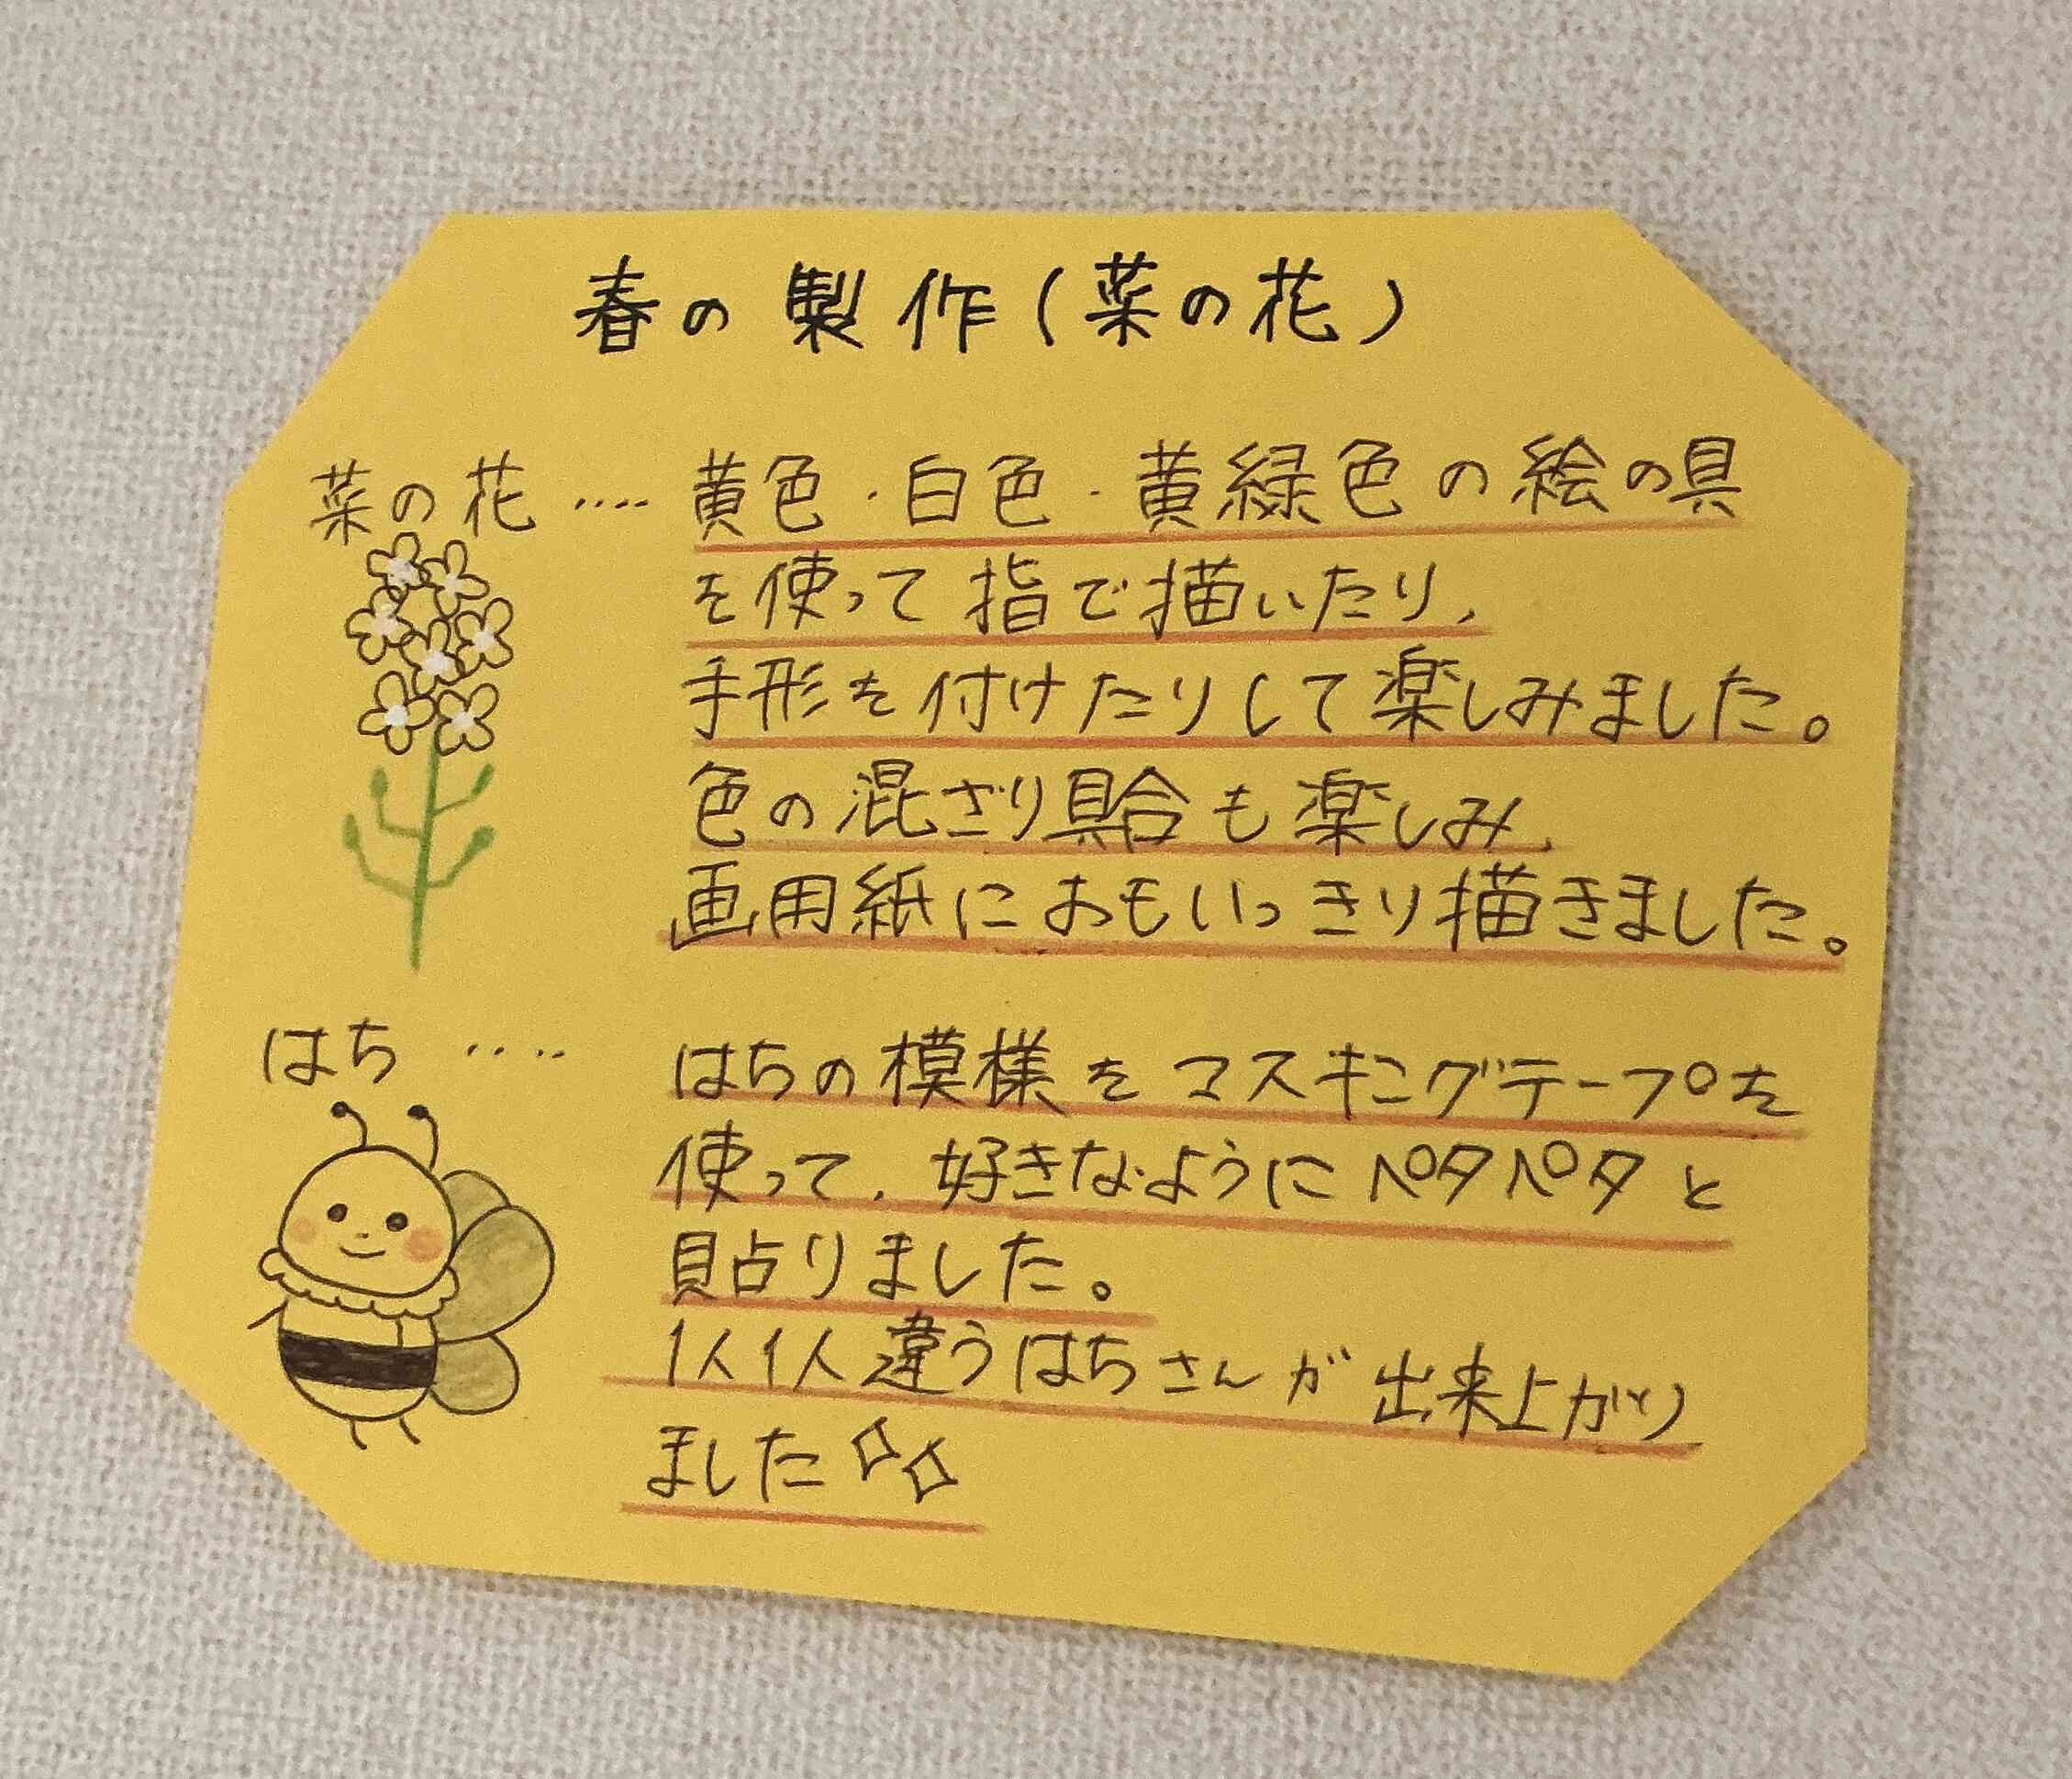 春の製作(菜の花)
菜の花‥‥黄色・白色・黄緑色の絵の具
を使って指で描いたり、
手形を付けたりして楽しみました。
色の混ざり具合も楽しみ、
画用紙におもいっきり描きました。
はち‥‥はちの模様をマスキングテープを
使って、好きなようにペタペタと
貼りました。
1人1人違うはちさんが出来上がり
ました